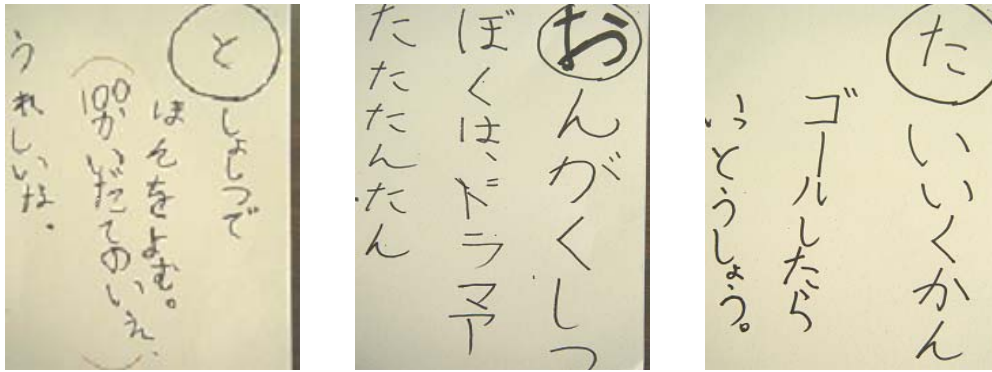 としょしつで
ほんをよむ。
100かいだてのいえ、
うれしいな。
おんがくしつ
ぼくは、ドラマア
たたたんたん
たいいくかん
ゴールしたら
いっとうしょう。